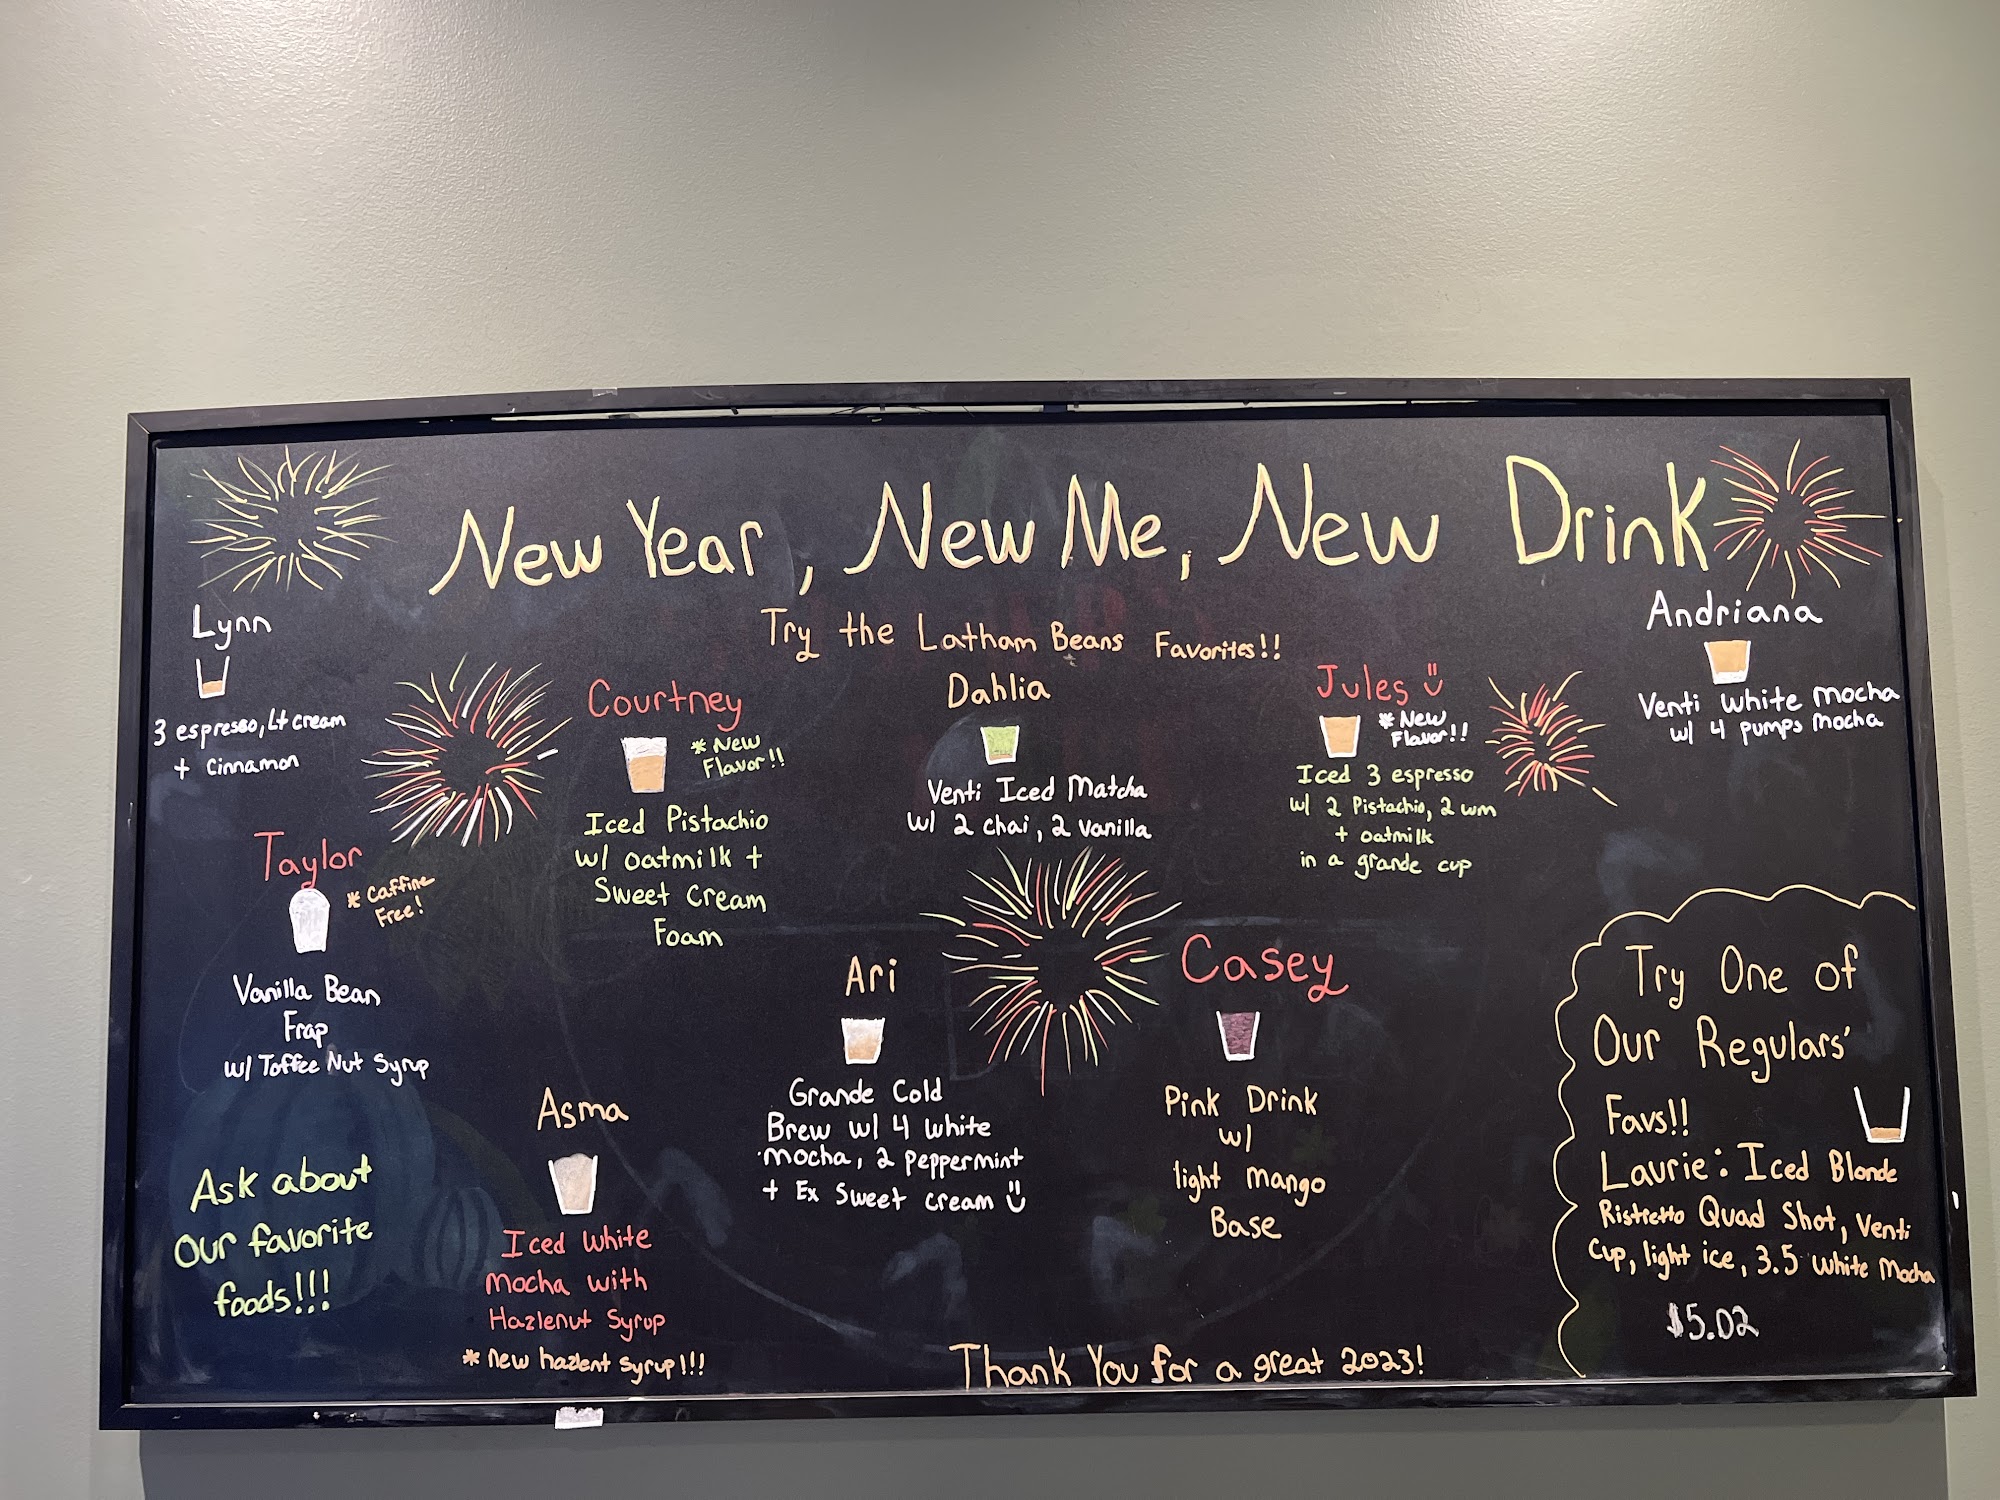 New Year, New Me, New Drink
Try the Latham Beans Favorites!!
Lynn
3 espresso, Lt cream
+ cinnamon
Taylor
* Caffine
Free!
Vanilla Bean
Frap
w/ Toffee Nut Syrup
Ask about
our favorite
foods!!!
Courtney
* New
Flavor!!
Iced Pistachio
w/ oatmilk +
Sweet Cream
Foam
Asma
Iced White
Mocha with
Hazlenut Syrup
* New hazlent syrup!!!
Dahlia
Venti Iced Matcha
w/ 2 chai, 2 vanilla
Ari
Grande Cold
Brew w/ 4 white
mocha, 2 peppermint
+ Ex Sweet cream
Casey
Pink Drink
w/
light mango
Base
Jules
* New
Flavor!!
Iced 3 espresso
w/ 2 Pistachio, 2 wm
+ oatmilk
in a grande cup
Andriana
Venti White Mocha
w/ 4 pumps Mocha
Try One of
Our Regulars'
Favs!!
Laurie: Iced Blonde
Ristretto Quad Shot, Venti
Cup, light ice, 3.5 White Mocha
$5.02
Thank You for a great 2023!